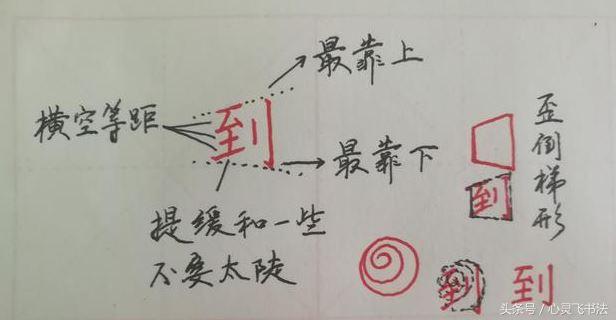 最靠上
横空等距
到
最靠下
提缓和一些
不要太陡
歪倒梯形
到
到
到
头条号/心灵飞书法